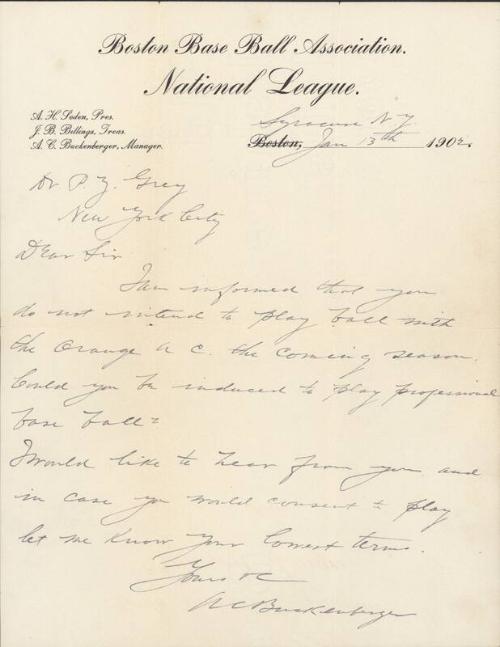 Boston Base Ball Association.
National League.
A. H. Soden, Pres.
J. B. Billings, Treas.
A. C. Buckenberger, Manager.
Syracuse N.Y.
Boston, Jan 13th 1902.
Dr P. Z. Grey
New York City
Dear Sir
I am informed that you
do not intend to play ball with
the Orange A C. the coming season.
Could you be induced to play professional
base ball?
I would like to hear from you and
in case you would consent to play
let me know your lowest terms.
Yours &c
A C Buckenberger